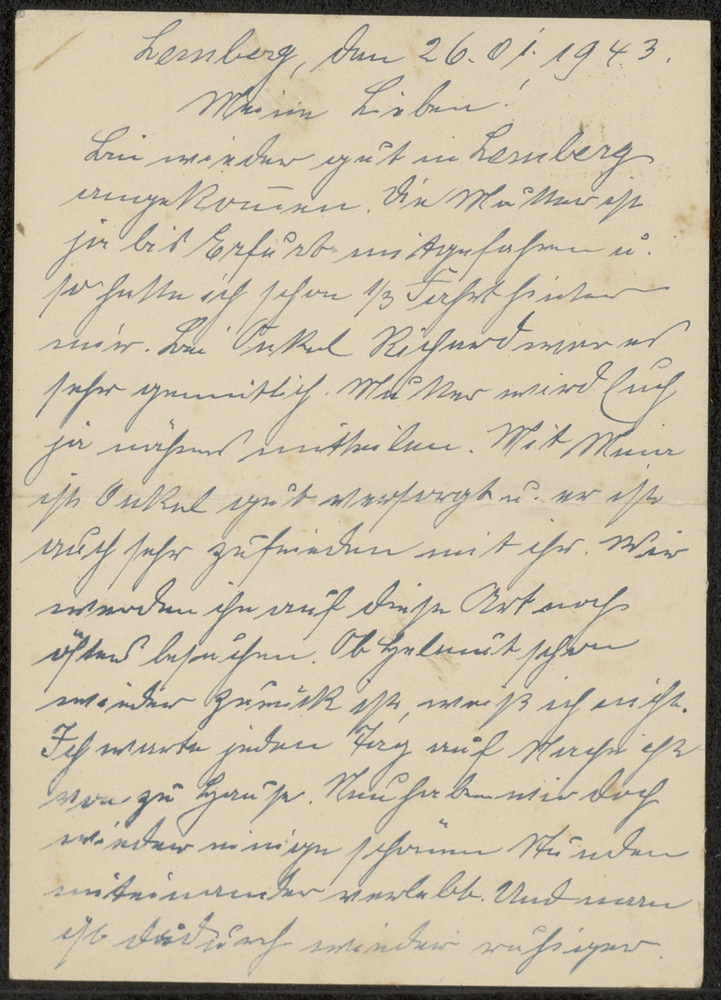 Lemberg, den 26.01.1943.
Meine Lieben!
Bin wieder gut in Lemberg
angekommen. Die Mutter ist
ja bis Erfurt mitgefahren u.
so hatte ich schon 1/3 Fahrt hinter
mir. Bei Onkel Richard war es
sehr gemütlich. Mutter wird Euch
ja näheres mitteilen. Mit
ist Onkel gut versorgt u. er ist
auch sehr zufrieden mit ihr. Wir
werden ihn auf diese Art noch
öfters besuchen. Ob Helmut schon
wieder zurück ist, weiß ich nicht.
Ich warte jeden Tag auf Nachricht
von zu Hause. Nun haben wir doch
wieder einige schöne Stunden
miteinander verlebt. Und man
ist dadurch wieder ruhiger.